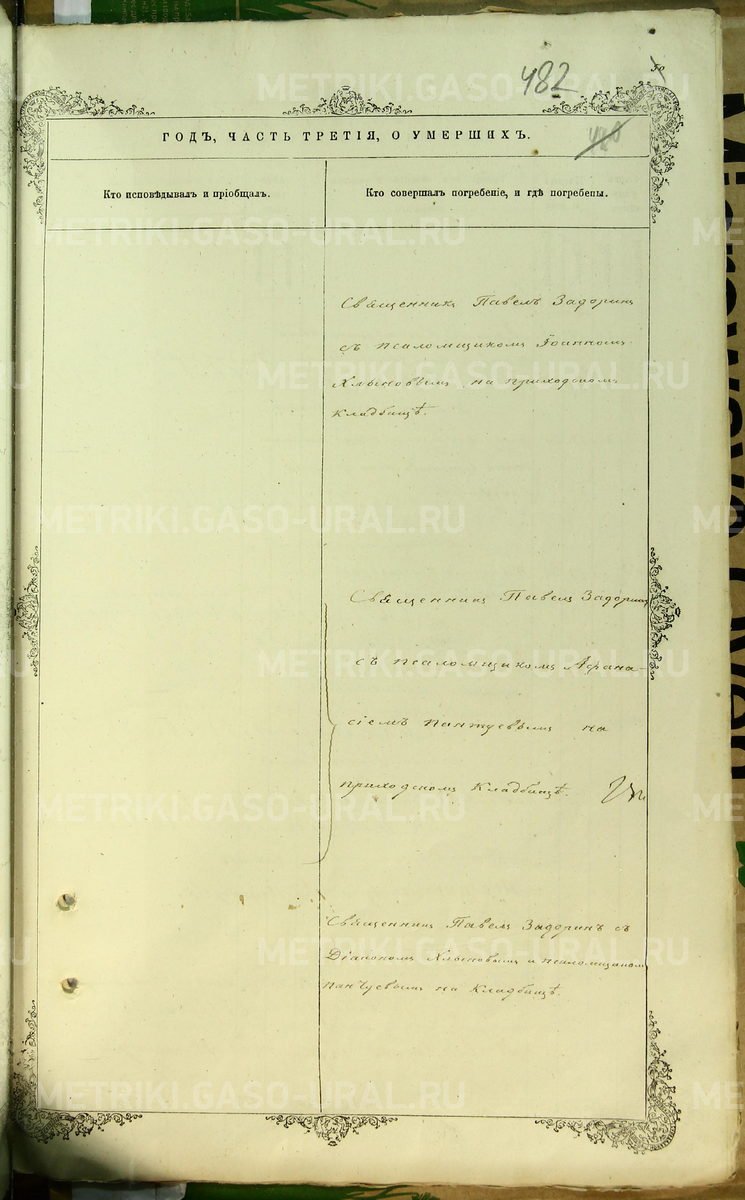 482
ГОДЪ, ЧАСТЬ ТРЕТІЯ, О УМЕРШИХЪ.
Кто исповѣдывалъ и пріобщалъ.
Кто совершалъ погребеніе, и гдѣ погребены.
Священникъ Павелъ Задоринъ
съ псаломщикомъ Іоанномъ
Хлыновымъ на приходскомъ
кладбищѣ.
Священникъ Павелъ Задоринъ
съ псаломщикомъ Афана-
сіемъ на
приходскомъ кладбищѣ.
Священникъ Павелъ Задоринъ съ
Діакономъ Хлыновымъ и псаломщикомъ
на кладбищѣ.
METRIKI.GASO-URAL.RU